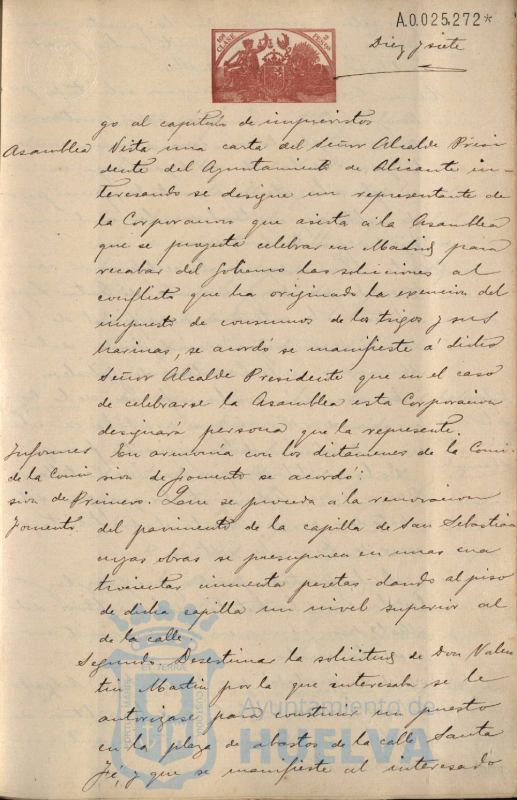 A.0.025,272*
11ª CLASE 2 PESOS
Diez y siete
go al capítulo de imprevistos
Asamblea Vista una carta del Señor Alcalde Presi
dente del Ayuntamiento de Alicante in-
teresando se designe un representante de
la Corporacion que asista á la Asamblea
que se proyecta celebrar en Madrid para
recabar del Gobierno las soluciones al
conflicto que ha originado la exencion del
impuesto de consumos de los trigos y sus
harinas, se acordó se manifieste á dicho
Señor Alcalde Presidente que en el caso
de celebrarse la Asamblea esta Corporacion
designará persona que la represente.
Informes En armonía con los dictamenes de la Comi-
de la Comi sion de Fomento se acordó:
sion de Primero. Que se proceda á la renovacion
Fomento. del pavimento de la capilla de San Sebastian
cuyas obras se presuponen en unas cua
trocientas cincuenta pesetas dando al piso
de dicha capilla un nivel superior al
de la calle.
Segundo. Desestimar la solicitud de Don Valen
tin Martin por la que interesaba se le
autorizase para construir un puesto
en la plaza de abastos de la calle Santa
Fe, y que se manifieste al interesado
Ayuntamiento de
HUELVA